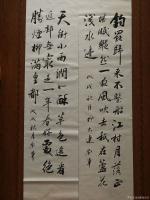 釣罷歸来不繫船江村月落正
堪眠縱然一夜風吹去只在蘆花
淺水邊
天街小雨潤如酥草色遥看
近却無最是一年春好處絕
勝煙柳滿皇都